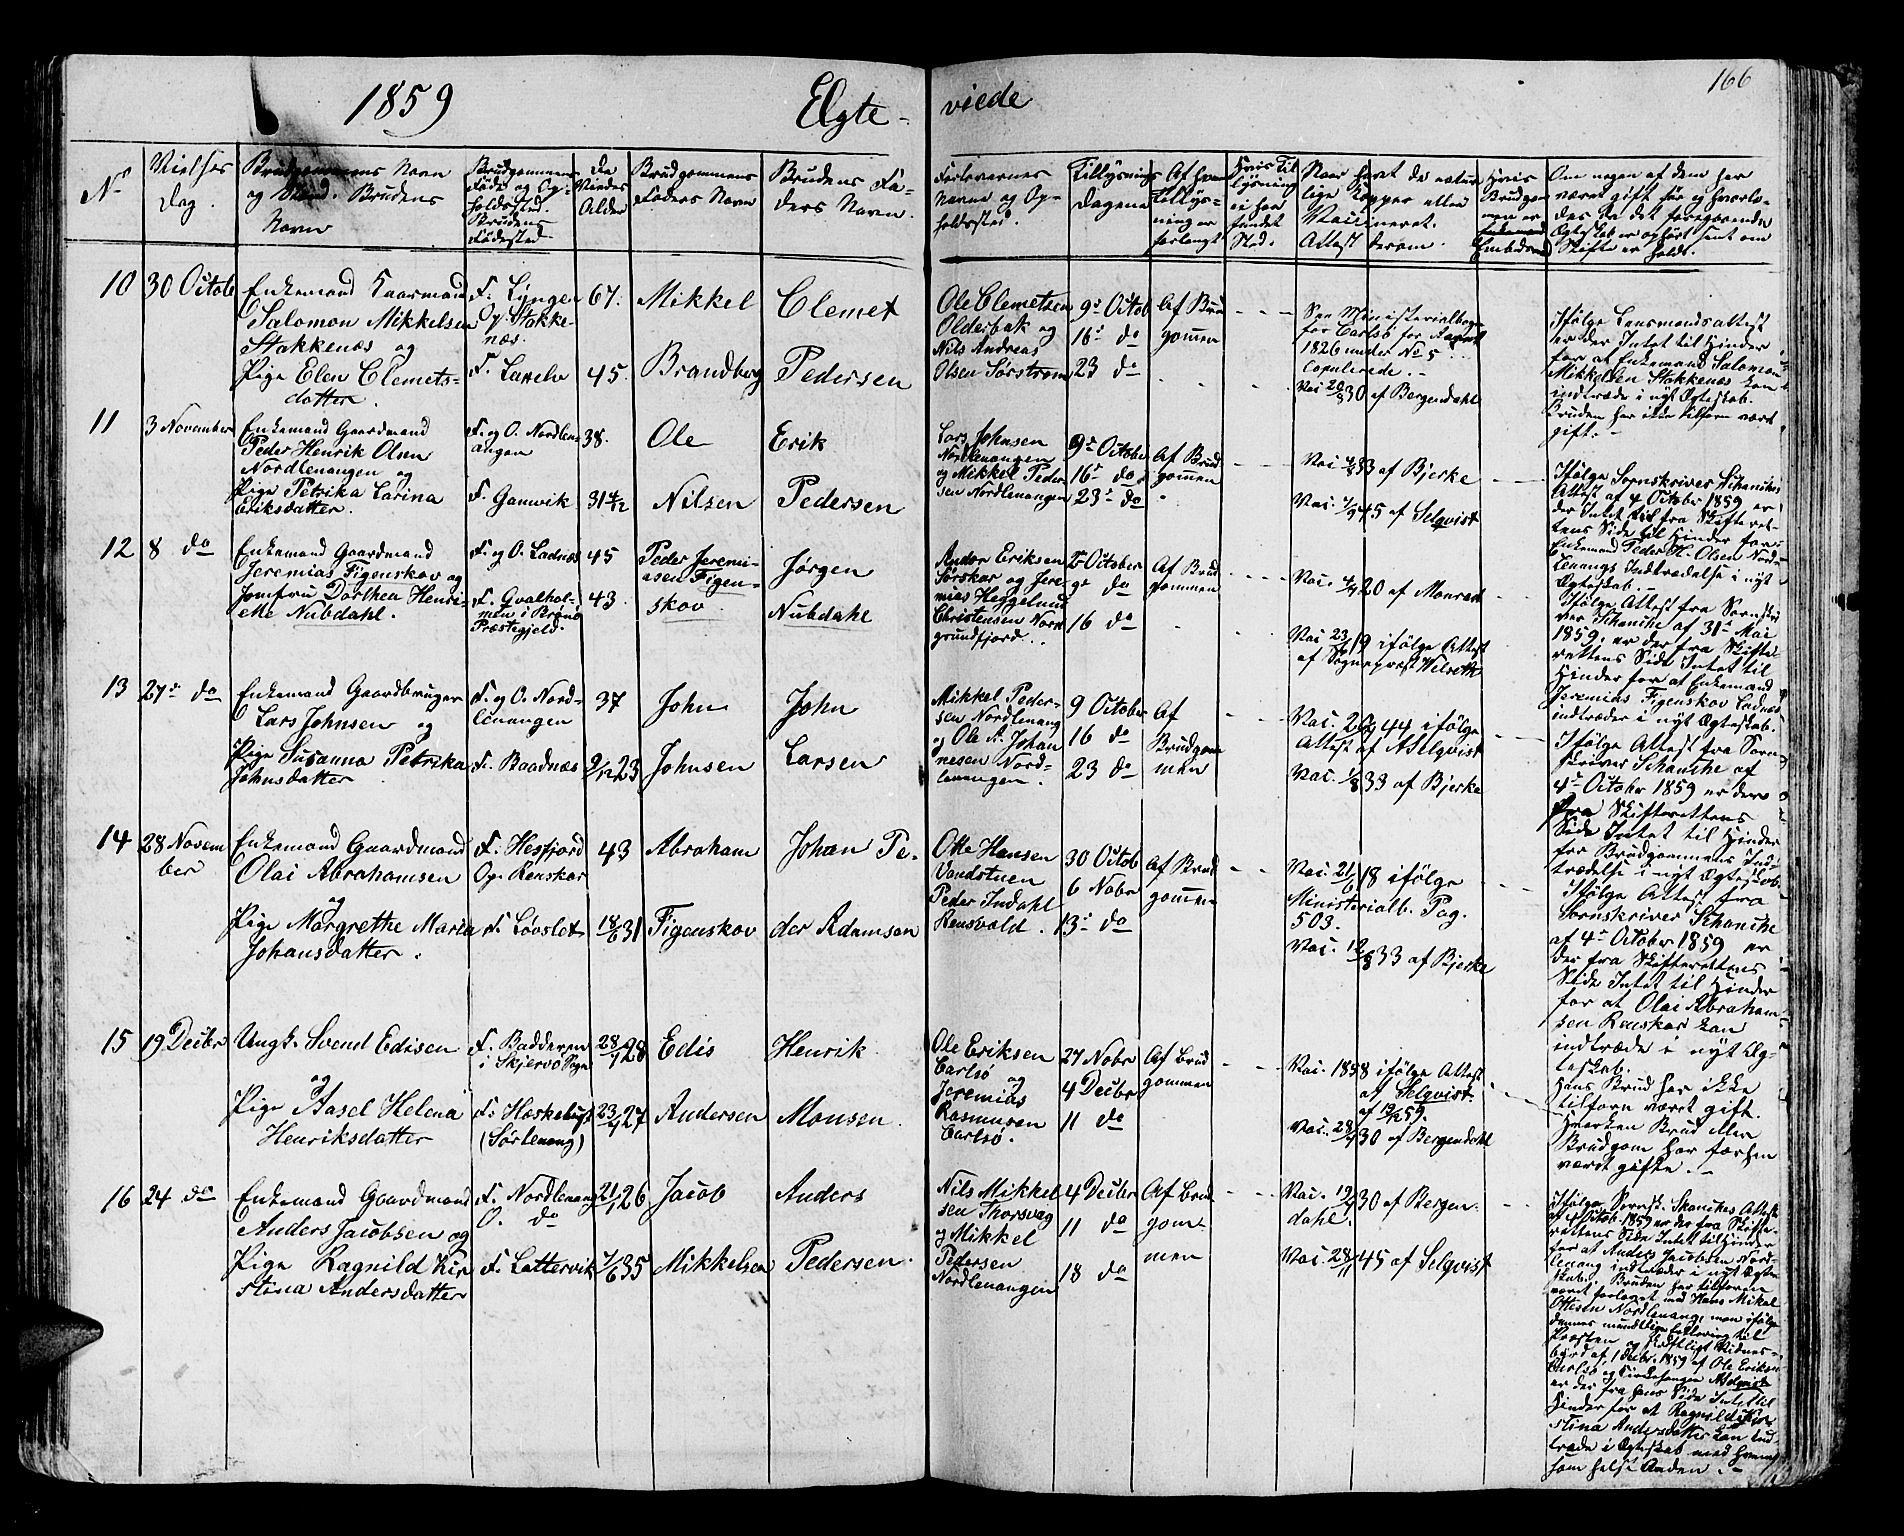 166
1859 Egte- viede
No
Vielses
Dag.
Brudgommens Navn
og Stand. Brudens
Navn
Brudgommens
Føde og Op-
holdssted.
Brudens
Fødested
De
Viedes
Alder
Brudgommens
Faders Navn
Brudens Fa-
ders Navn.
Forlovernes
Navne og Op-
holdssted.
Tillysnings
Dagene
Af hvem
Tillys-
ning er
forlangt
Hvis Til
lysning
ei har
fundet
Sted.
Naar havt de natur
lige Kopper eller
Vaccineret.
Attest derom.
Hvis
Brudgom
men er
Embedsmd
Om nogen af dem har
været gift før og hvorle-
des da det foregaaende
Ægteskab er ophørt samt om
Skifte er holdt.
10
30 Octob
Enkemand Gaarmand
Salomon Mikkelsen
Stakkenæs og
Pige Elen Clemets-
datter.
F. Lyngen
Op. Stakke-
næs.
F. Larelv
67.
45.
Mikkel
Brandberg
Clemet
Pedersen
Ole Clemetsen
Olderbak og
Nils Andreas
Olsen Sørstrøm
9de Octob
16de do
23 do
Af Brud
gommen
See Ministerialbogen
for Carlsø for August
1826 under No 5
Copulerede. -
Vac. 20/8 30 af Bergendahl
Ifølge Lensmandsattest
er der Intet til Hinder
for at Enkemand Salomon
Mikkelsen Stakkenæs kan
indtræde i nyt Ægteskab.
Bruden har ikke tilforn vært
gift. -
11
3 November
Enkemand Gaardmand
Peder Henrik Olsen
Nordlenangen og
Pige Petrika Carina
Eriksdatter.
F. og O. Nordlen
angen
F. Gamvik
38.
31 4/12
Ole
Nilsen
Erik
Pedersen
Lars Johnsen
Nordlenangen
og Mikkel Peder
sen Nordlenangen
9de Octobr
16de do
23de do
Af Brud
gommen
Vac. 4/8 33 af Bjerke
Vac. 1/9 45 af Selqvist
Ifølge Sornskriver Schanches
Attest af 4 October 1859 er
der Intet til fra Skifteret-
tens Side til Hinder for
Enkemand Peder H. Olsen Nord-
lenangs Indtrædelse i nyt
Ægteskab. -
12
8 do
Enkemand Gaardmand
Jeremias Figenskov og
Jomfru Dorthea Henri-
ette Nubdahl.
F. og O. Ladnæs
F. Hvalhol-
men i Brønø
Præstegjeld.
45
43
Peder Jeremi-
asen Figen-
skov
Jørgen
Nubdahl
Andor Eriksen
Sørskar og Jere
mias Heggelund
Christensen Nord
grundfjord.
2 October
9de do
16 do
Af Brud
gommen
Vac. 4/7 20 af Monrad
Vac. 23/6 19 ifølge Attest
af Sognepræst Wilreth
Ifølge Attest fra Sornskri
ver Schanche af 31te Mai
1859. er der fra Skifte
rettens Side Intet til
Hinder for at Enkemand
Jeremias Figenskov Ladnæs
indtræder i nyt Ægteskab.
13
27de do
Enkemand Gaardbruger
Lars Johnsen og
Pige Susanna Petrika
Johnsdatter
F. og O. Nord-
lenangen
F. Baadnæs
37
9/12 23
John
Johnsen
John
Larsen
Mikkel Peder-
sen Nordlenang
og Ole A. Johan
nesen Nord-
lenangen.
9 October
16 do
23 do
Af
Brudgom
men
Vac. 26/9 44 ifølge
Attest af ASelqvist
Vac. 1/8 33 af Bjerke
Ifølge Attest fra Sorn-
skriver Schanche af
4de October 1859 er der
fra Skifterettens
Side Intet til Hinder
for Brudgommens Ind-
trædelse i nyt Ægteskab.
14
28 Novem
ber
Enkemand Gaardmand
Olai Abrahamsen
og
Pige Margrethe Maria
Johansdatter.
F. Hesfjord
Op. Renskar
F. Løvslet
43
18/6 31
Abraham
Figenskov
Johan Pe-
der Adamsen
Otte Hansen
Vandstuen
Peder Indahl
Rensvold.
30 Octob
6 Nobr
13de do
Af Brud
gommen
Vac. 21/6 18 ifølge
Ministerialb. Pag.
503.
Vac. 12/8 33 af Bjerke
Ifølge Attest fra
Sornskriver Schanche
af 4de October 1859 er
der fra Skifterettens
Side Intet til Hinder
for at Olai Abraham-
sen Renskar kan
indtræde i nyt Æg-
teskab.
Hans Brud har ikke
tilforn været gift.
15
19 Decbr
Ungk. Svend Edisen
og
Pige Aasel Helena
Henriksdatter
F. Badderen
i Skjervø Sogn
F. Hæskebugt
(Sørlenang)
28/9 28
23/4 27
Edis
Andersen
Henrik
Monsen.
Ole Eriksen
Carlsø
og
Jeremias
Rasmusen
Carlsø.
27 Nobr
4 Decbr
11 do
Af Brud
gommen
Vac. 1858 ifølge Attest
af Selqvist
af 13/12 59.
Vac. 28/7 30 af Bergendahl
Hverken Brud eller
Brudgom har forhen
vært gifte. -
16
24 do
Enkemand Gaardmand
Anders Jacobsen og
Pige Ragnild Kir
stina Andersdatter
F. Nordlenang
O. do
F. Lattervik
21/1 26
7/6 35
Jacob
Mikkelsen
Anders
Pedersen.
Nils Mikkel
sen Thorsvag
og Mikkel
Pedersen
Nordlenangen
4 Decbr
11 do
18 do
Af Brud
gom-
men
Vac. 19/9 30 af Bergen-
dahl.
Vac. 28/11 45 af Selqvist
Ifølge Sornsk. Skanches Attest
af 4 Octob. 1859 er der fra Skifte-
rettens Side Intet til Hinder
for at Anders Jacobsen Nord-
lenang indtræder i nyt Ægte
skab. Bruden har tilforn
vært forlovet med Hans Mikal
Ottesen Nordlenang, men ifølge
dennes mundtlige Erklæring til
Præsten og skriftligt Vidnes-
byrd af 1 Decbr. 1859 af Ole Eriksen
Carlsø, og Kirkesanger ASelqvist
er der fra hans Side Intet til
Hinder for at Ragnild Kir-
stina Andersdatter kan ind-
træde i Ægteskab med hvem
som helst Anden. -